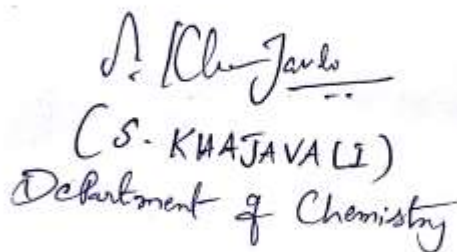 (S. KHAJAVALI)
Department of Chemistry